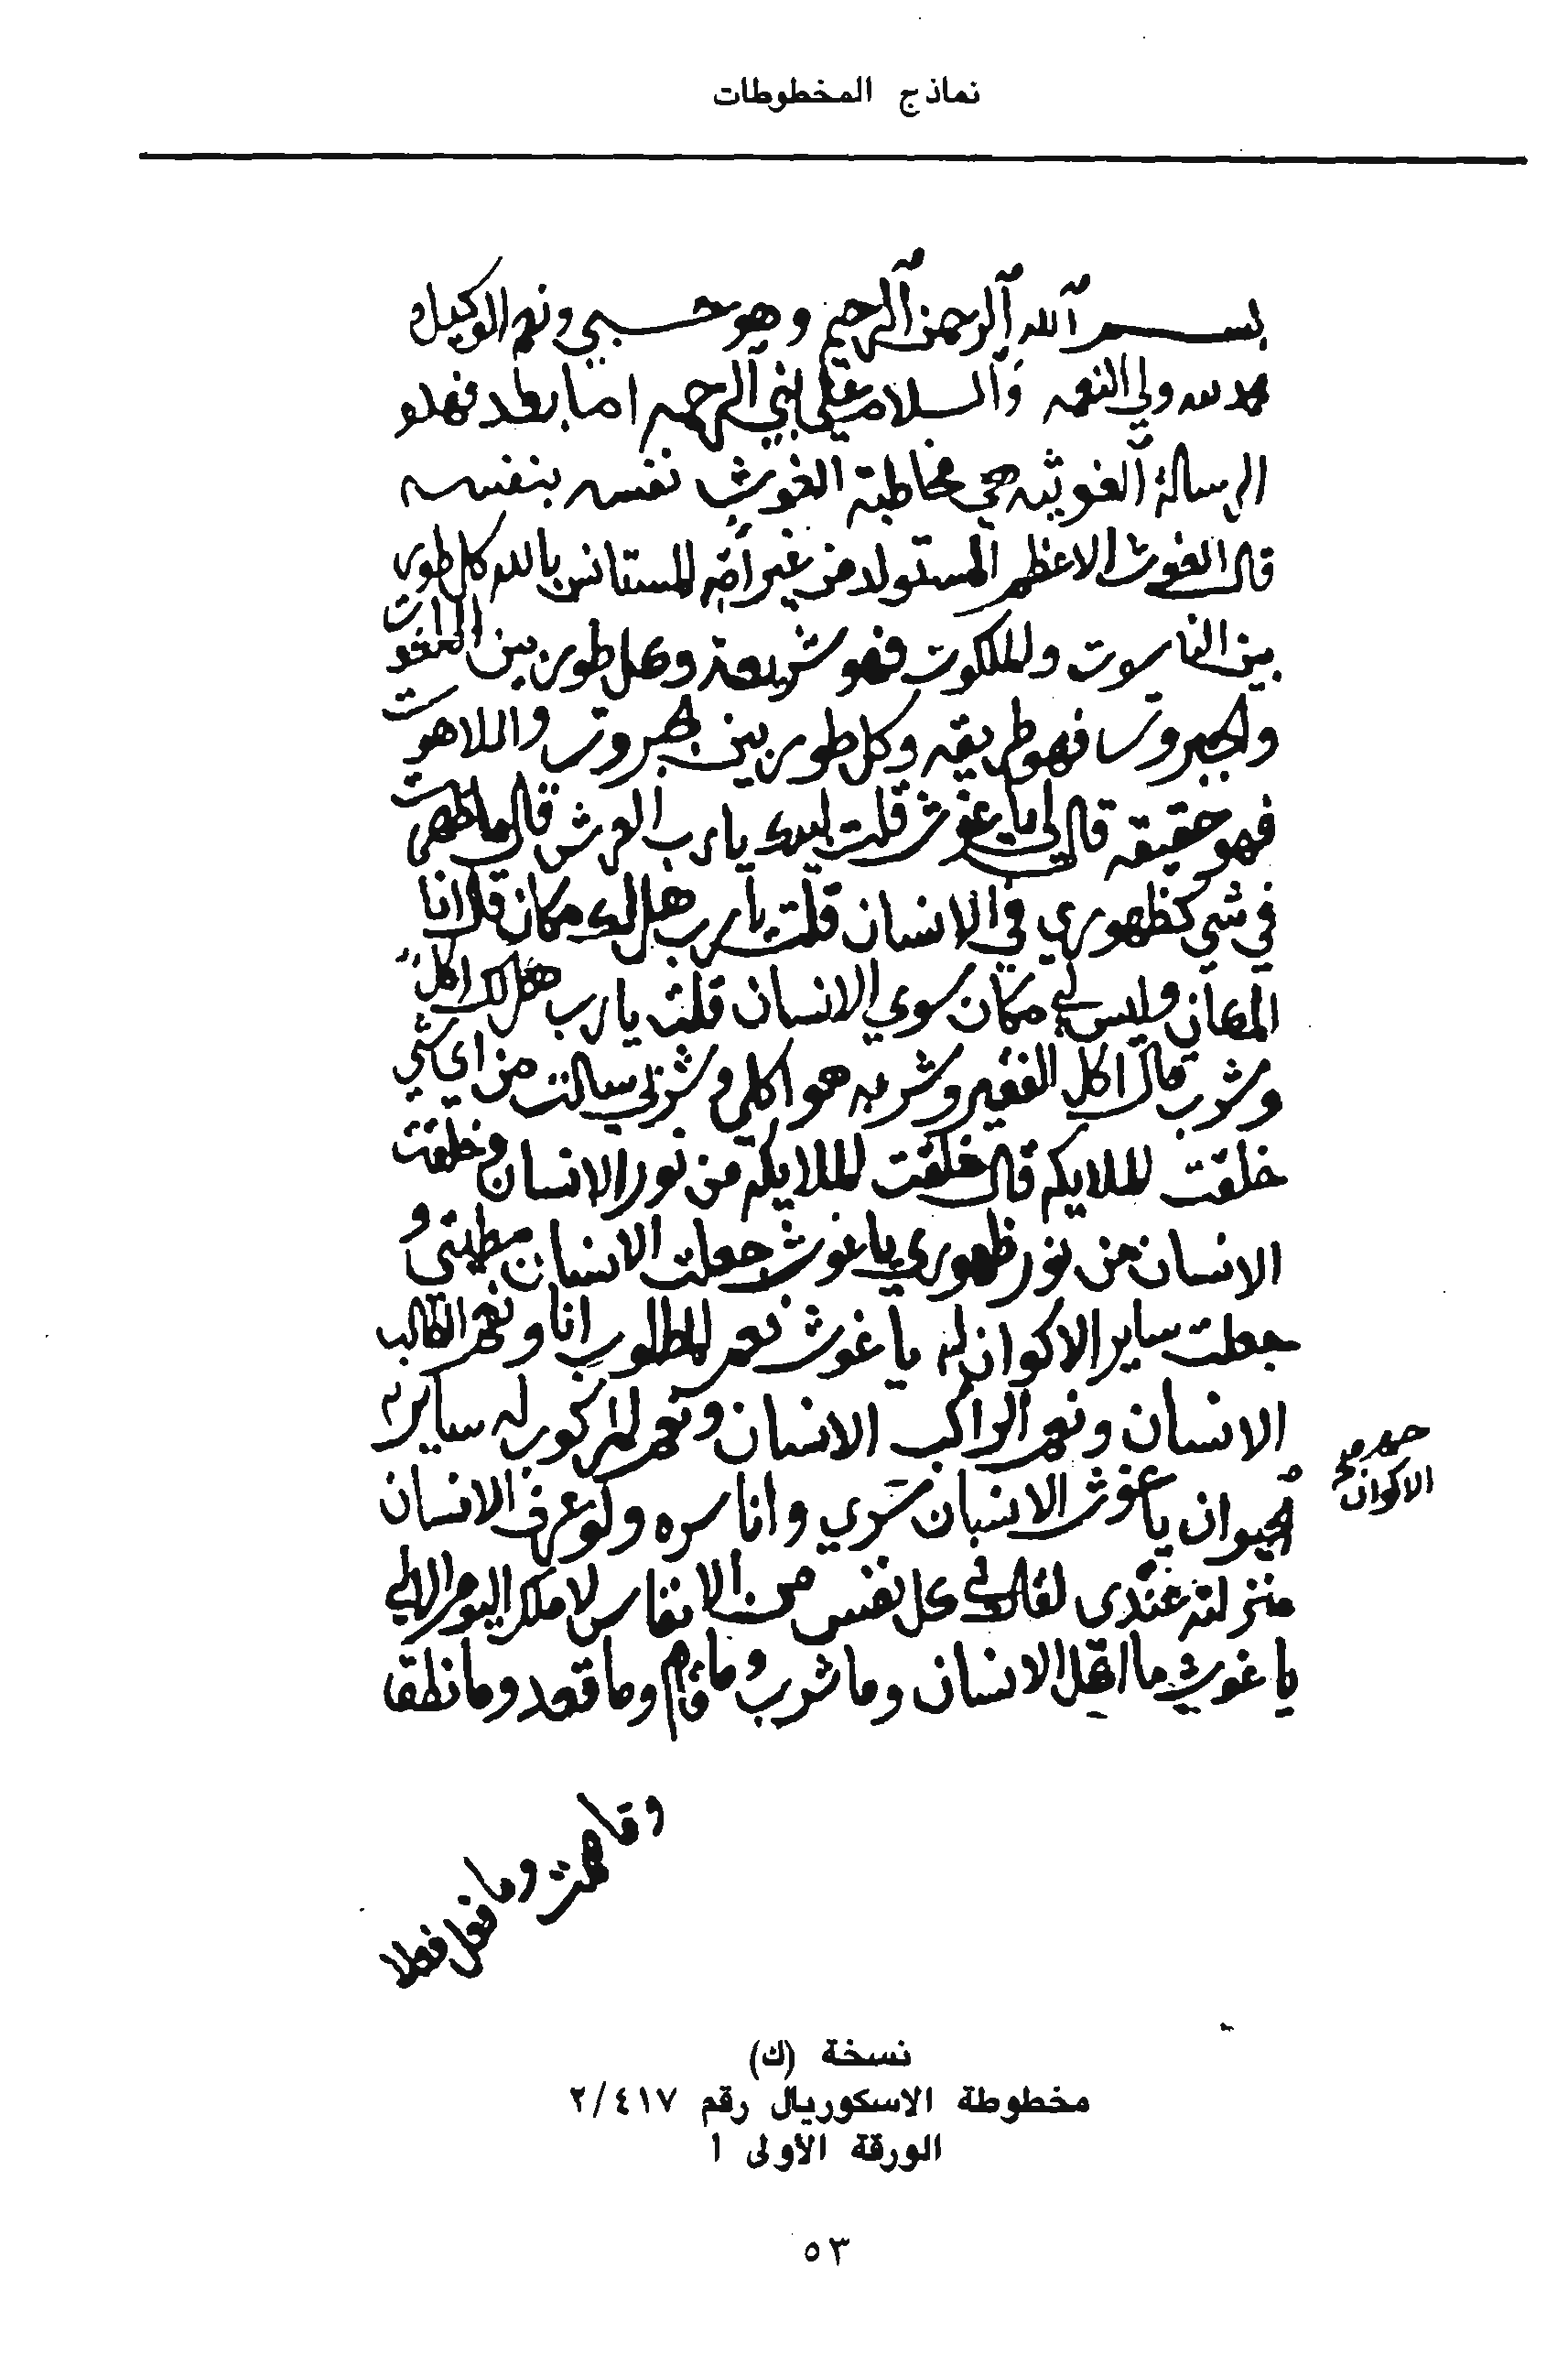 نماذج المخطوطات
بسم الله الرحمن الرحيم وهو حسبي ونعم الوكيل و
حمد لله ولي النعمه والسلام علي نبي الرحمه اما بعد فهذه
الرسالة الغوثيه هي مخاطبة الغوث نفسه بنفسه
قال الغوث الاعظم المستولد من غير امه المستانس بالله كل طور
بين الناسوت والملكوت فهو شريعة وكل طور بين الملكوت
والجبروت فهو طريقه وكل طور بين الجبروت واللاهوت
فهو حقيقه قال لي يا غوث قلت لبيك يا رب العرش قال ما ظهرت
في شي كظهوري في الانسان قلت يا رب هل لك مكان قال انا
المكان وليس لي مكان سوي الانسان قلت يا رب هل لك اكل
وشرب قال اكل الفقير وشربه هو اكلي وشربي سالت من اي شي
خلقت الملايكه قال خلقت الملايكه من نور الانسان وخلقت
الانسان من نور ظهوري يا غوث جعلت الانسان مطيتي و
جعلت ساير الاكوان له يا غوث نعم المطلوب انا ونعم الطالب
الانسان ونعم الراكب الانسان ونعم المركوب له ساير
الاكوان
الحيوان يا غوث الانسان سري وانا سره ولو عرف الانسان
منزلته عندي لقال في كل نفس من الانفاس لا ملك اليوم الا لي
يا غوث ما اكل الانسان وما شرب وما قام وما قعد وما نطق
وما فعل فعلا
نسخة (ك)
مخطوطة الاسكوريال رقم ٢/٤١٧
الورقة الأولى ا
٥٣